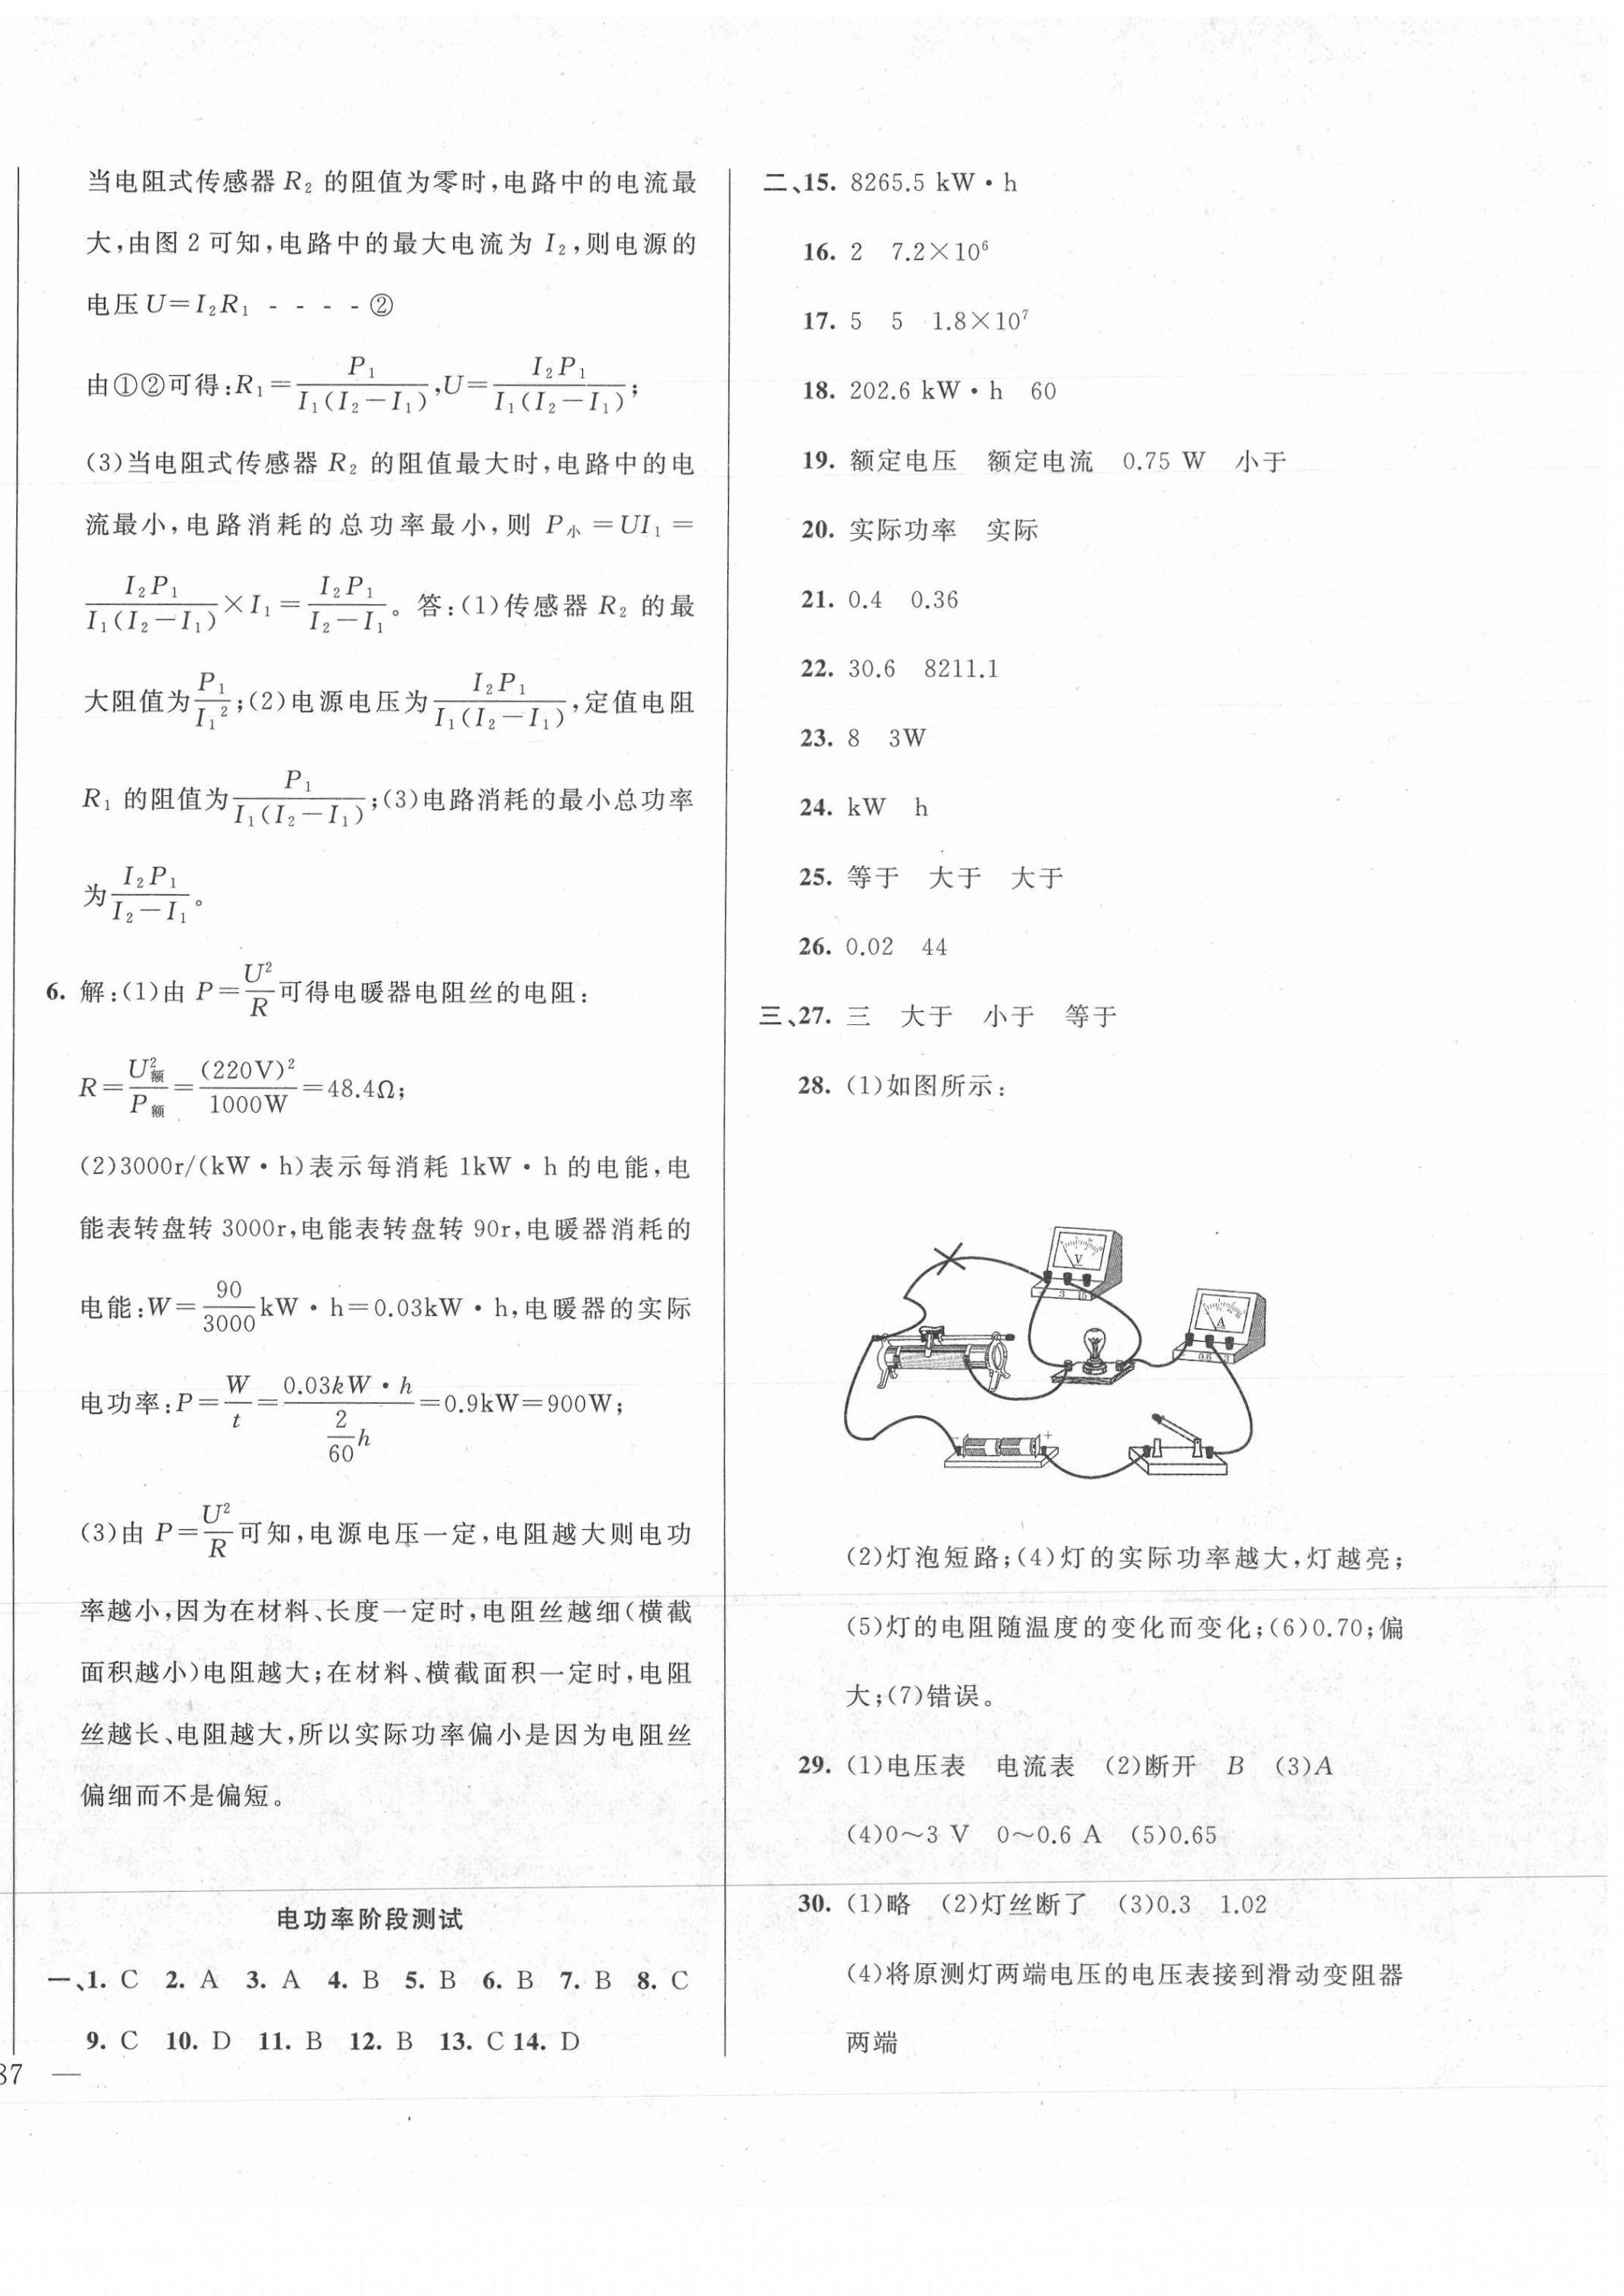 当电阻式传感器 R₂ 的阻值为零时,电路中的电流最
大,由图 2 可知,电路中的最大电流为 I₂,则电源的
电压 U=I₂R₁ - - - - ②
由①②可得:R₁=P₁/(I₁(I₂-I₁)),U=I₂P₁/(I₁(I₂-I₁));
(3)当电阻式传感器 R₂ 的阻值最大时,电路中的电
流最小,电路消耗的总功率最小,则 P小=UI₁=
I₂P₁/(I₁(I₂-I₁))×I₁=I₂P₁/(I₂-I₁)。答:(1)传感器 R₂ 的最
大阻值为P₁/I₁²;(2)电源电压为I₂P₁/(I₁(I₂-I₁)),定值电阻
R₁ 的阻值为P₁/(I₁(I₂-I₁));(3)电路消耗的最小总功率
为I₂P₁/(I₂-I₁)。
6. 解:(1)由 P=U²/R可得电暖器电阻丝的电阻:
R=U²额/P额=(220V)²/1000W=48.4Ω;
(2)3000r/(kW·h)表示每消耗 1kW·h 的电能,电
能表转盘转 3000r,电能表转盘转 90r,电暖器消耗的
电能:W=90/3000kW·h=0.03kW·h,电暖器的实际
电功率:P=W/t=0.03kW·h/(2/60 h)=0.9kW=900W;
(3)由 P=U²/R可知,电源电压一定,电阻越大则电功
率越小,因为在材料、长度一定时,电阻丝越细(横截
面积越小)电阻越大;在材料、横截面积一定时,电阻
丝越长、电阻越大,所以实际功率偏小是因为电阻丝
偏细而不是偏短。
电功率阶段测试
一、1. C 2. A 3. A 4. B 5. B 6. B 7. B 8. C
9. C 10. D 11. B 12. B 13. C 14. D
87 —
二、15. 8265.5 kW·h
16. 2 7.2×10⁶
17. 5 5 1.8×10⁷
18. 202.6 kW·h 60
19. 额定电压 额定电流 0.75 W 小于
20. 实际功率 实际
21. 0.4 0.36
22. 30.6 8211.1
23. 8 3W
24. kW h
25. 等于 大于 大于
26. 0.02 44
三、27. 三 大于 小于 等于
28. (1)如图所示:
V
3 15
A
0.6 3
- +
(2)灯泡短路;(4)灯的实际功率越大,灯越亮;
(5)灯的电阻随温度的变化而变化;(6)0.70;偏
大;(7)错误。
29. (1)电压表 电流表 (2)断开 B (3)A
(4)0～3 V 0～0.6 A (5)0.65
30. (1)略 (2)灯丝断了 (3)0.3 1.02
(4)将原测灯两端电压的电压表接到滑动变阻器
两端